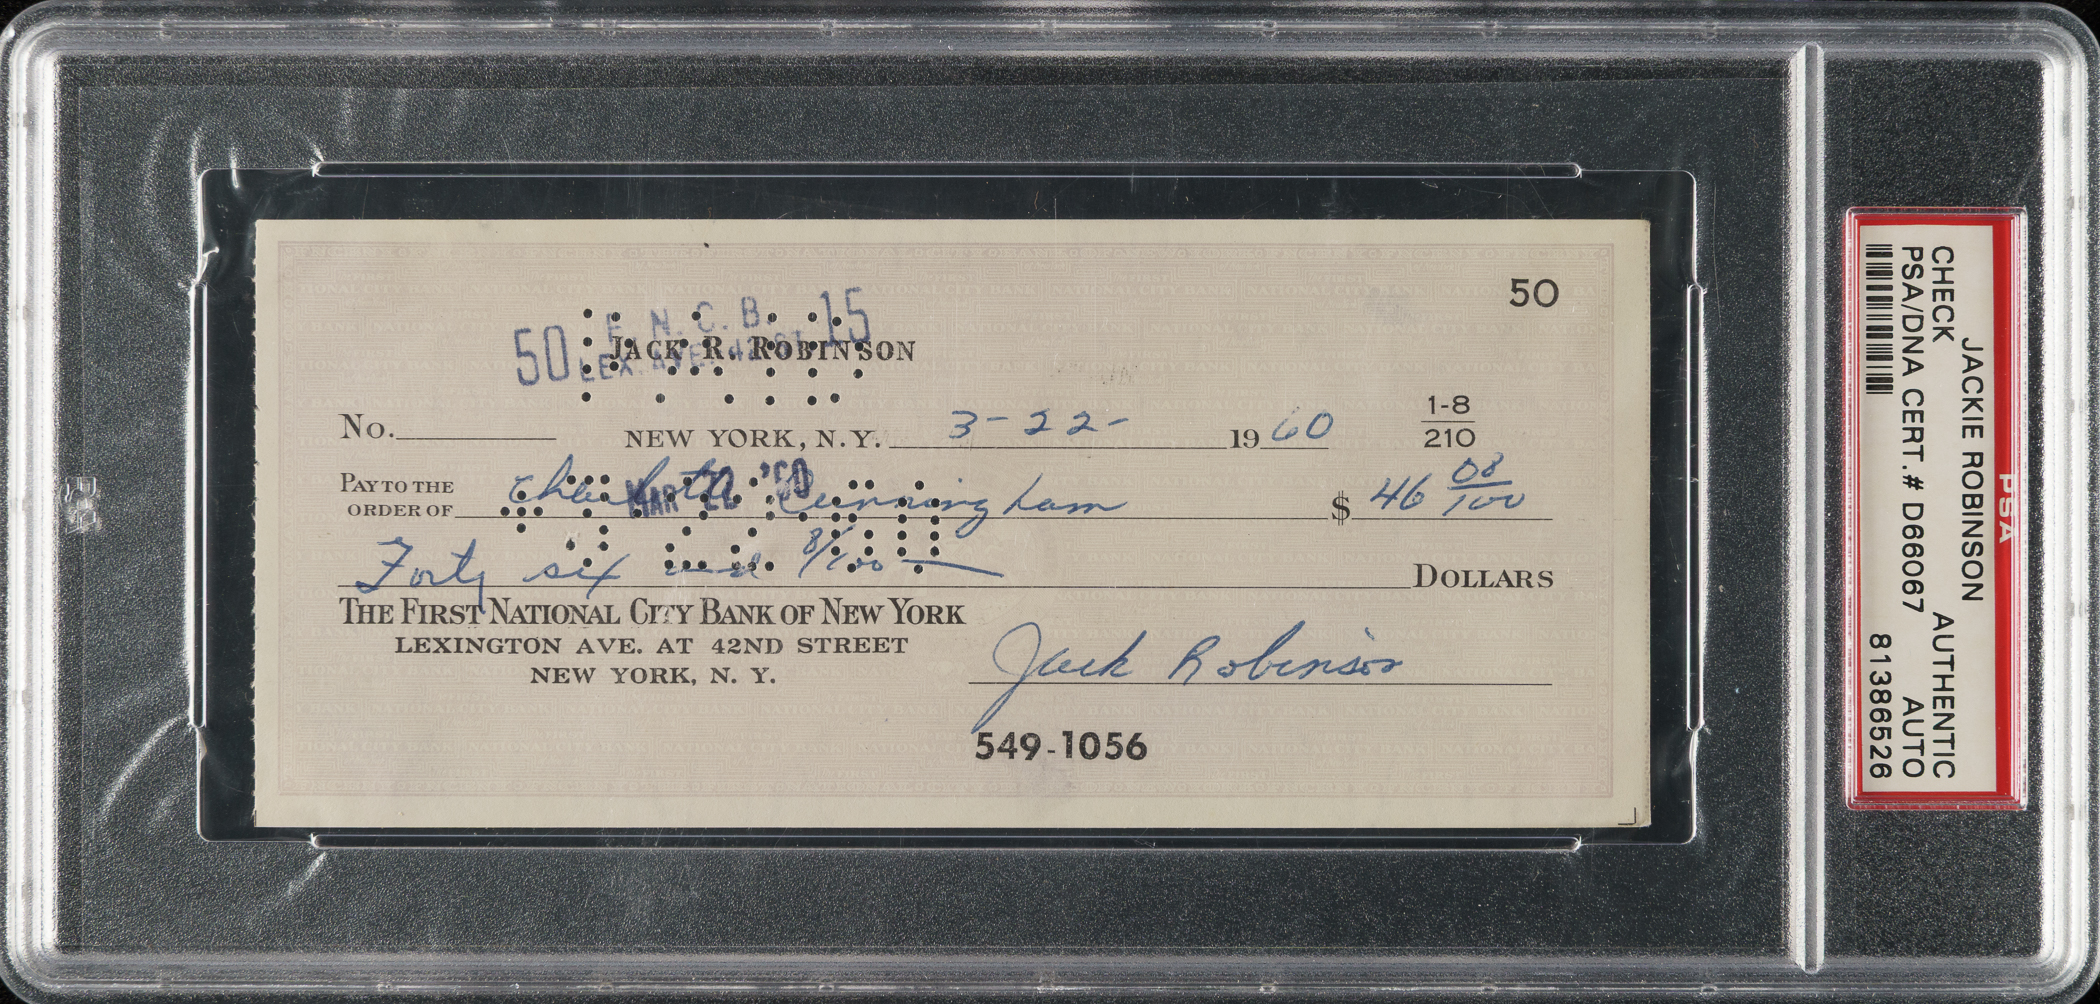 50
50 F. N. C. B. 15
LEX. AVE. 42 ST.
JACK R. ROBINSON
No.
NEW YORK, N.Y. 3-22- 1960
1-8
210
PAY TO THE
ORDER OF Charlotte Cunningham $ 46 08/100
MAR 28 '60
Forty six and 8/100 DOLLARS
THE FIRST NATIONAL CITY BANK OF NEW YORK
LEXINGTON AVE. AT 42ND STREET
NEW YORK, N. Y.
Jack Robinson
549-1056
PSA
JACKIE ROBINSON
CHECK AUTHENTIC
PSA/DNA CERT.# D66067 AUTO
81386526